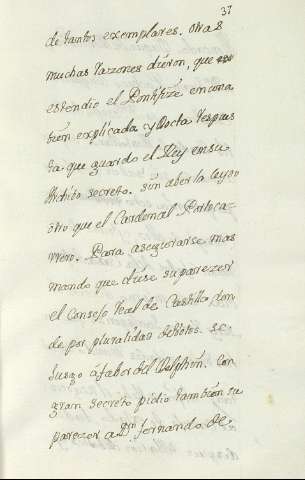 37
de tantos exemplares. otras
muchas razones dieron, que
estendio el Pontifize en una
bien explicada y Docta respues
ta que guardo el Rey en su
devido secreto. sin aberla leydo
otro que el Cardenal Portoca-
rrero. Para asegurarse mas
mando que diese su parezer
el Consejo real de Castilla don
de por pluralidas de botos. se
Juzgo á fabor del Delphin. Con
gran secreto pidio tambien su
parezer a Dn. fernando de